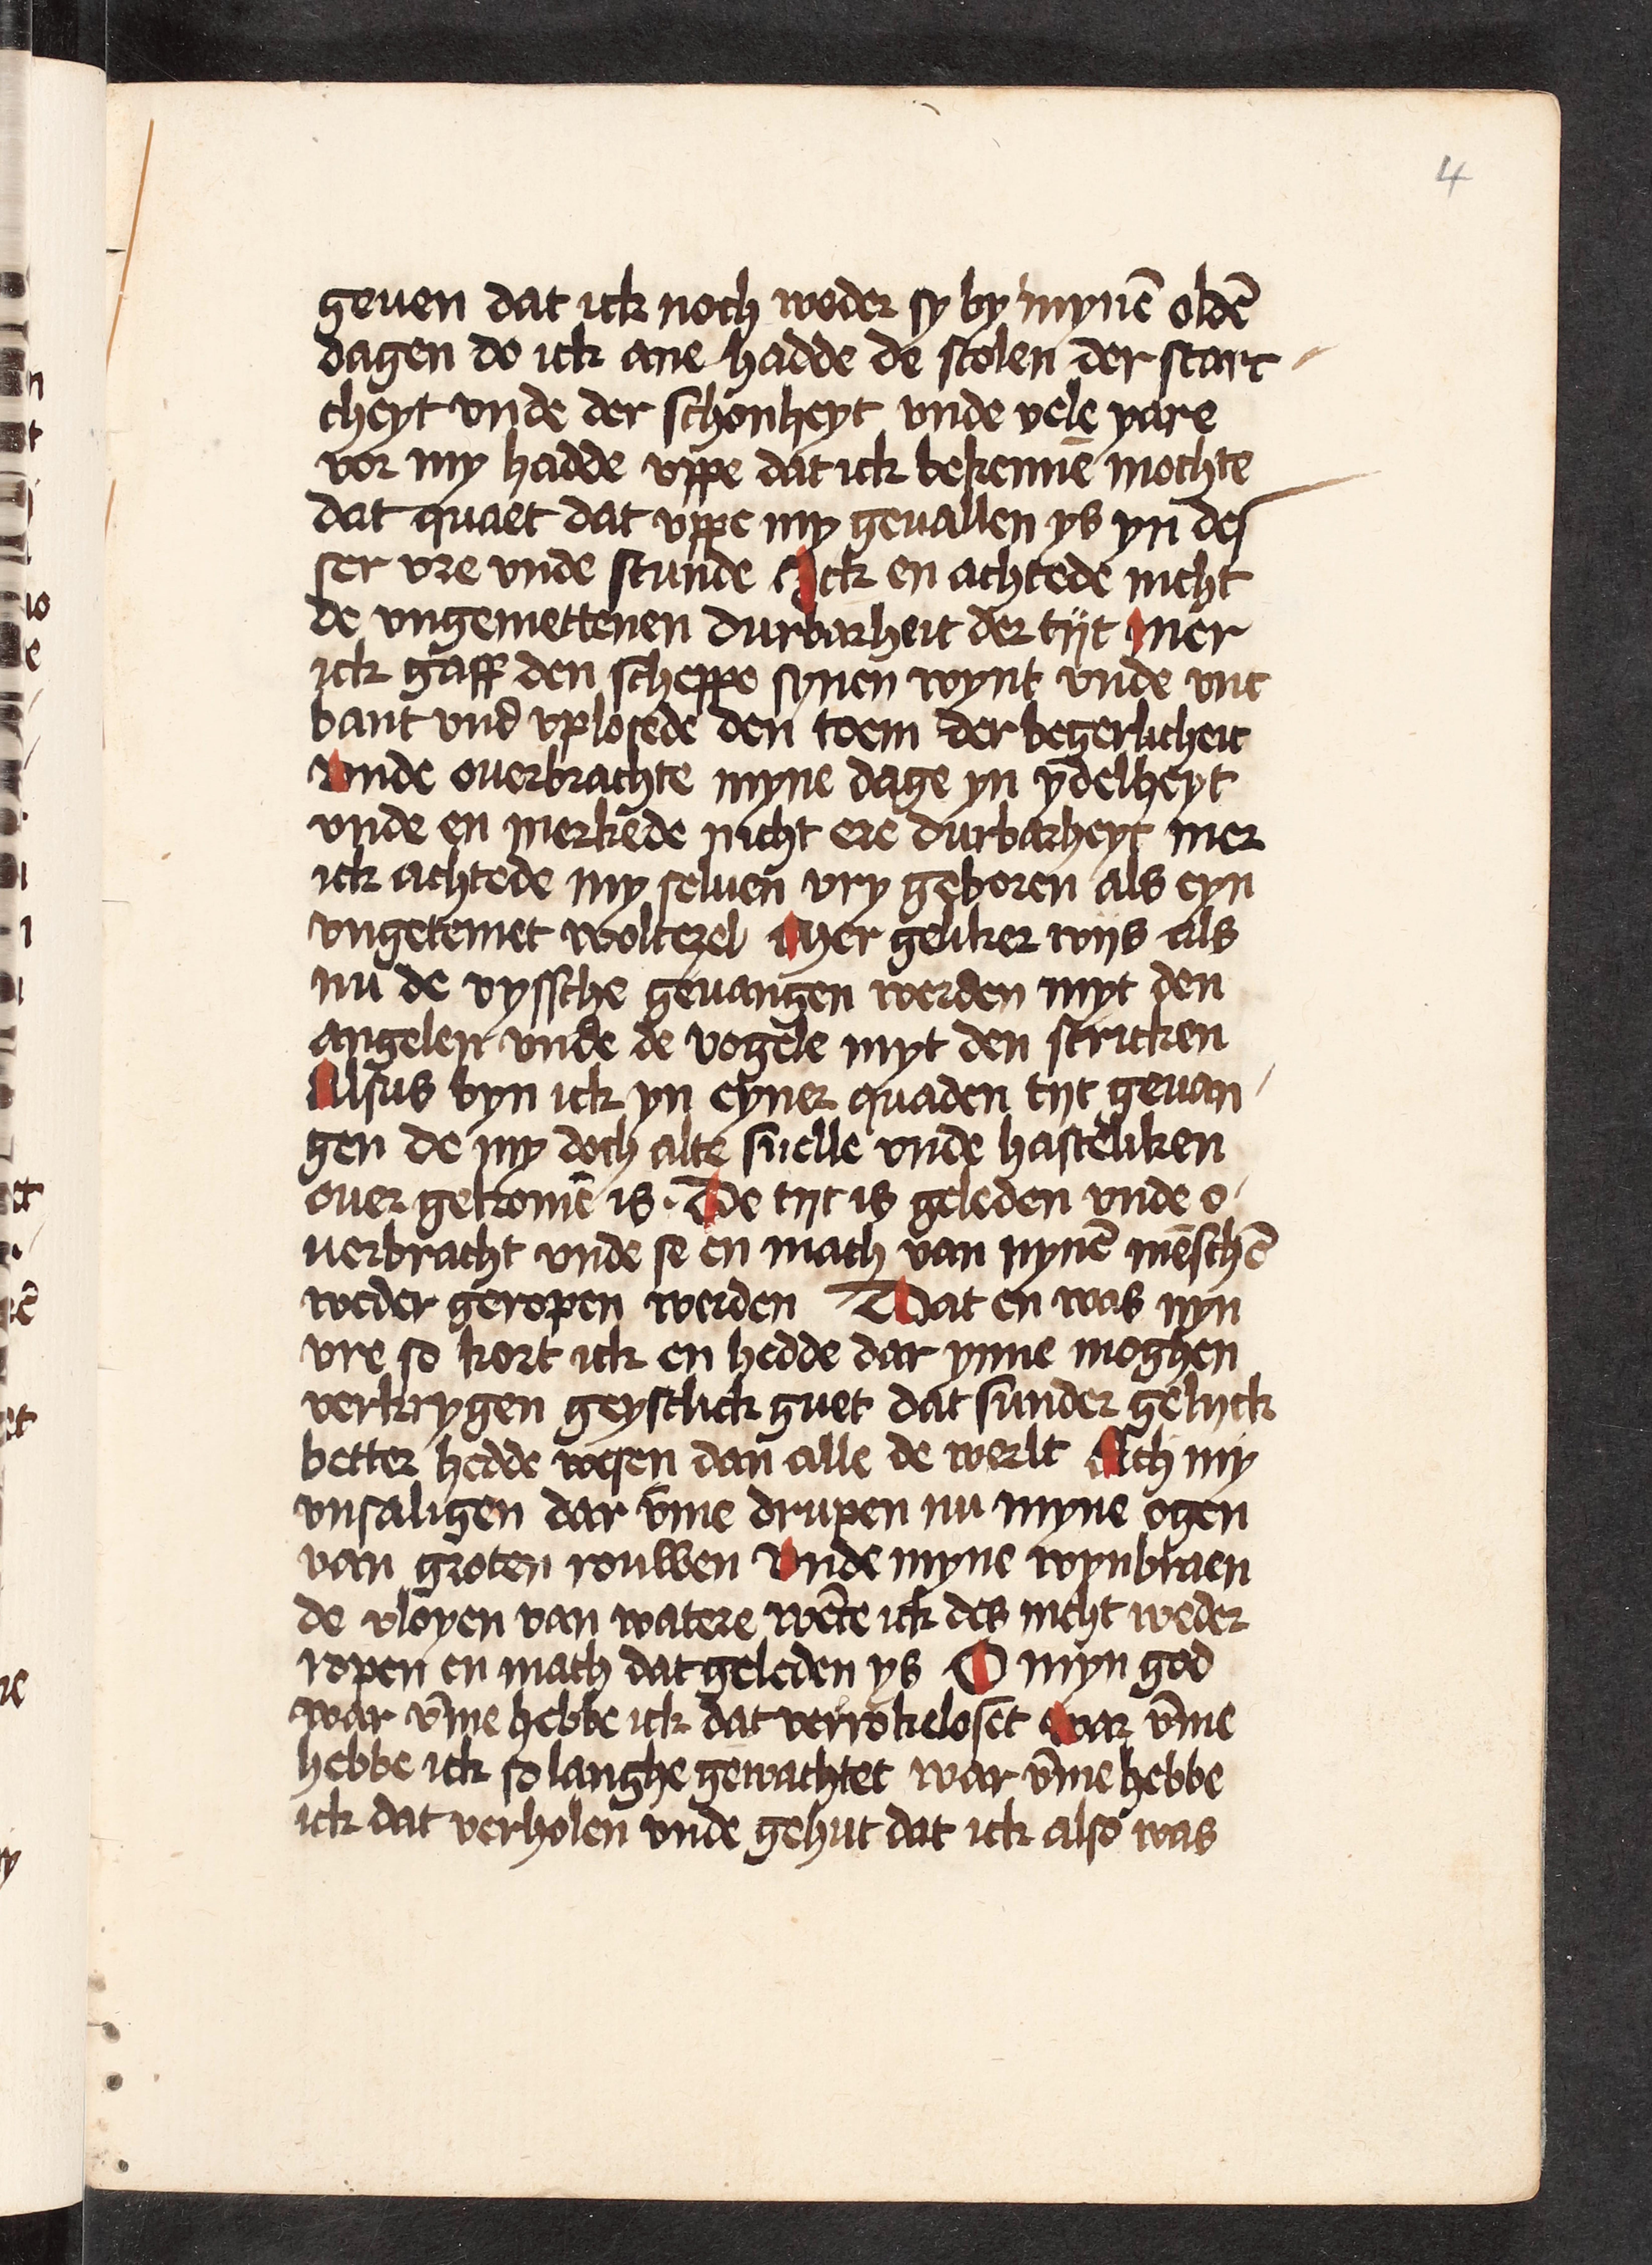 4
geuen dat ick noch weder sy by mynē oldē
dagen do ick ane hadde de stolen der starc
cheyt vnde der schonheyt vnde vele yare
vor my hadde vppe dat ick bekennē mochte
dat quaet dat vppe my geuallen ys yn des
ser vre vnde stunde Ick en achtede nicht
de vngemettenen durbarheit der tijt Mer
ick gaff den scheppe synen wynt vnde vnt
bant vnd vplosede den toem der begerlicheit
Vnde ouerbrachte myne dage yn ydelheyt
vnde en merkede nicht ere durbarheyt mer
ick achtede my seluen vry geboren als eyn
vngetemet woltezel Mer geliker wijs als
nu de vyssche geuangen werden myt den
angelen vnde de vogele myt den stricken
Alsus byn ick yn eyner quaden tijt geuan
gen de my doch alte snelle vnde hasteliken
ouer gekomē is. De tijt is geleden vnde o
uerbracht vnde se en mach van nynē mēschē
weder geropen werden Dat en was nyn
vre so kort ick en hedde dar ynne moghen
verkrygen geystlick guet dat sunder gelijck
better hedde wesen dan alle de werlt Ach my
vnsaligen dar v̄me drupen nu myne ogen
van groten rouwen Vnde myne wynbraen
de vloyen van watere wēte ick des nicht weder
ropen en mach dat geleden ys O myn god
war v̄me hebbe ick dat verrokeloset war v̄me
hebbe ick so langhe gewachtet war v̄me hebbe
ick dat verholen vnde gehut dat ick also was